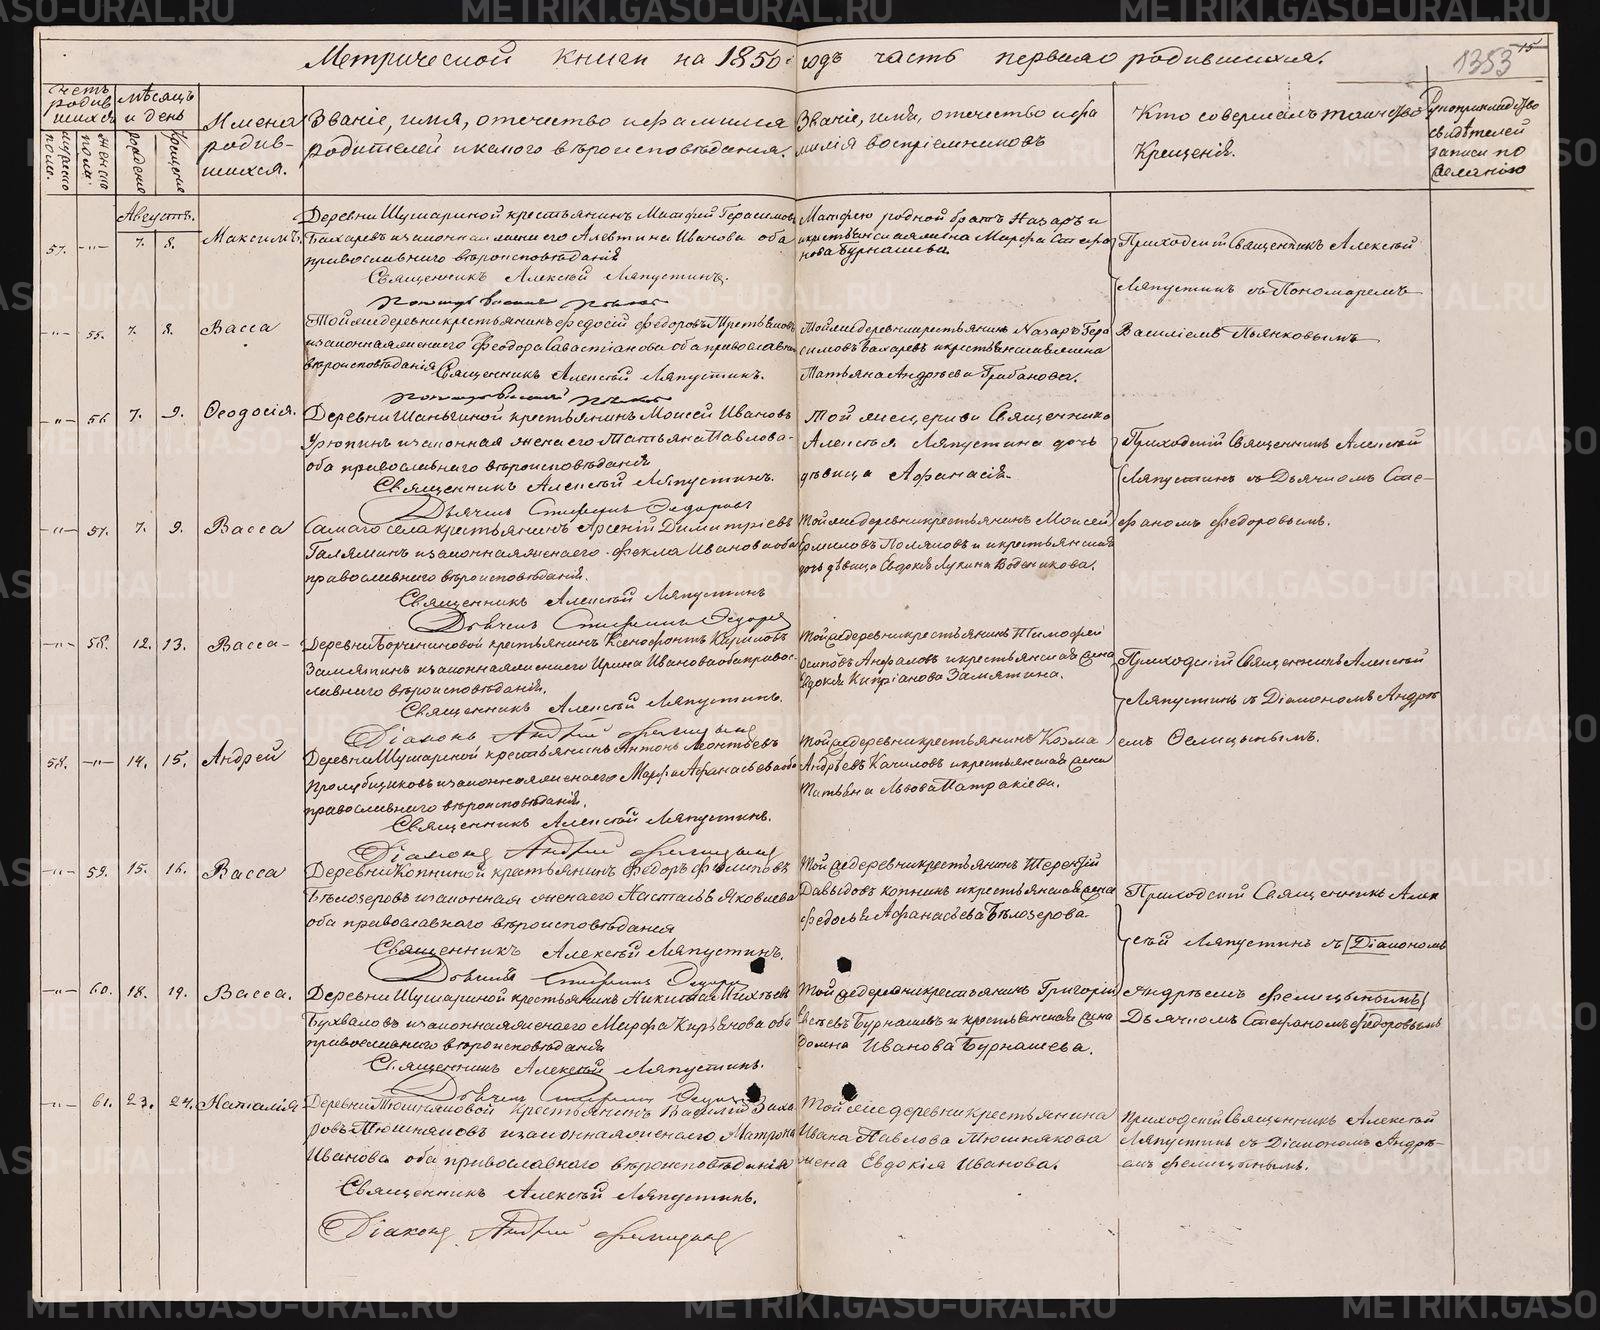 Метрической книги на 1850й годъ часть первая о родившихся.
1353
15
Счетъ родившихся
Мѣсяцъ и день
Имена родившихся.
Званіе, имя, отечество и фамилия
родителей и какого вѣроисповѣдания.
Званіе, имя, отечество и фамилія воспріемниковъ
Кто совершалъ таинство
Крещенія.
Рукоприкладство
свидѣтелей
записи по
желанію
Августъ.
57. -„- 7. 8. Максимъ.
Деревни Шушариной крестьянинъ Матфей Герасимовъ
Бахаревъ и законная жена его Алевтина Иванова оба
православнаго вѣроисповѣданія
Священникъ Алексѣй Ляпустинъ.
Матфею родной братъ Назаръ и
крестьянская жена Марфа
Бурнашева.
Приходскій Священникъ Алексѣй
Ляпустинъ съ Пономаремъ
Василіемъ Пьянковымъ
-„- 55. 7. 8. Васса
Той же деревни крестьянинъ Федосій Федоровъ Третьяковъ
и законная жена его Феодора Савастіанова оба православнаго
вѣроисповѣданія
Священникъ Алексѣй Ляпустинъ.
Той же деревни крестьянинъ Назаръ Герасимовъ Бахаревъ и крестьянская жена
Татьяна Андрѣева Грибанова.
-„- 56 7. 9. Феодосія.
Деревни Шаньгиной крестьянинъ Моисей Ивановъ
Урюпинъ и законная жена его Татьяна Павлова
оба православнаго вѣроисповѣданія
Священникъ Алексѣй Ляпустинъ.
Дьячекъ Стефанъ Федоровъ
Той же церкви Священника
Алексѣя Ляпустина дочь
дѣвица Афанасія.
Приходскій Священникъ Алексѣй
Ляпустинъ съ Дьячкомъ Сте-
фаномъ Федоровымъ.
-„- 57. 7. 9. Васса
Самаго села крестьянинъ Арсеній Димитріевъ
Галяминъ и законная жена его Фекла Иванова оба
православнаго вѣроисповѣданія.
Священникъ Алексѣй Ляпустинъ
Дьячекъ Стефанъ Федоровъ
Той же деревни крестьянинъ Моисей
Ермиловъ Поляковъ и крестьянская
дочь дѣвица Евдокія Лукина Воденикова.
-„- 58. 12. 13. Васса
крестьянинъ Ксенофонтъ Кириловъ
Замятинъ и законная жена его Ирина Иванова оба православнаго вѣроисповѣданія.
Священникъ Алексѣй Ляпустинъ.
Діаконъ Андрей Фелицынъ
Той же деревни крестьянинъ Тимофей
Осиповъ Анфаловъ и крестьянская жена
Евдокія Кипріанова Замятина.
Приходскій Священникъ Алексѣй
Ляпустинъ съ Діакономъ Андрѣ-
емъ Фелицынымъ.
58. -„- 14. 15. Андрей
Деревни Шушариной крестьянинъ Антонъ Леонтьевъ
Пролубщиковъ и законная жена его Марфа Афанасьева оба
православнаго вѣроисповѣданія.
Священникъ Алексѣй Ляпустинъ.
Діаконъ Андрей Фелицынъ
Той же деревни крестьянинъ Козма
Андрѣевъ Качиловъ и крестьянская жена
Татьяна Львова Патракіева.
-„- 59. 15. 16. Васса
Деревни Копниной крестьянинъ Федоръ Филиповъ
Бѣлозеровъ и законная жена его Настасья Яковлева
оба православнаго вѣроисповѣдания
Священникъ Алексѣй Ляпустинъ.
Дьячекъ Стефанъ Федоровъ
Той же деревни крестьянинъ Терентій
Давыдовъ Копнинъ и крестьянская жена
Федосья Афанасьева Бѣлозерова.
Приходскій Священникъ Алек
сѣй Ляпустинъ съ [Діакономъ
Андрѣемъ Фелицынымъ]
Дьячкомъ Стефаномъ Федоровымъ
-„- 60. 18. 19. Васса.
Деревни Шушариной крестьянинъ Никита
Бухваловъ и законная жена его Марфа Кирьянова оба
православнаго вѣроисповѣданія
Священникъ Алексѣй Ляпустинъ.
Дьячекъ Стефанъ Федоровъ
Той же деревни крестьянинъ Григорій
Бурнашевъ и крестьянская жена
Домна Иванова Бурнашева.
-„- 61. 23. 24. Наталія
Деревни Тюшняковой крестьянинъ Василій Заха-
ровъ Тюшняковъ и законная жена его Матрона
Иванова оба православнаго вѣроисповѣданія
Священникъ Алексѣй Ляпустинъ.
Діаконъ Андрей Фелицынъ
Той же деревни крестьянина
Ивана Павлова Тюшнякова
жена Евдокія Иванова.
Приходскій Священникъ Алексѣй
Ляпустинъ съ Діакономъ Андрѣ-
емъ Фелицынымъ.
METRIKI.GASO-URAL.RU